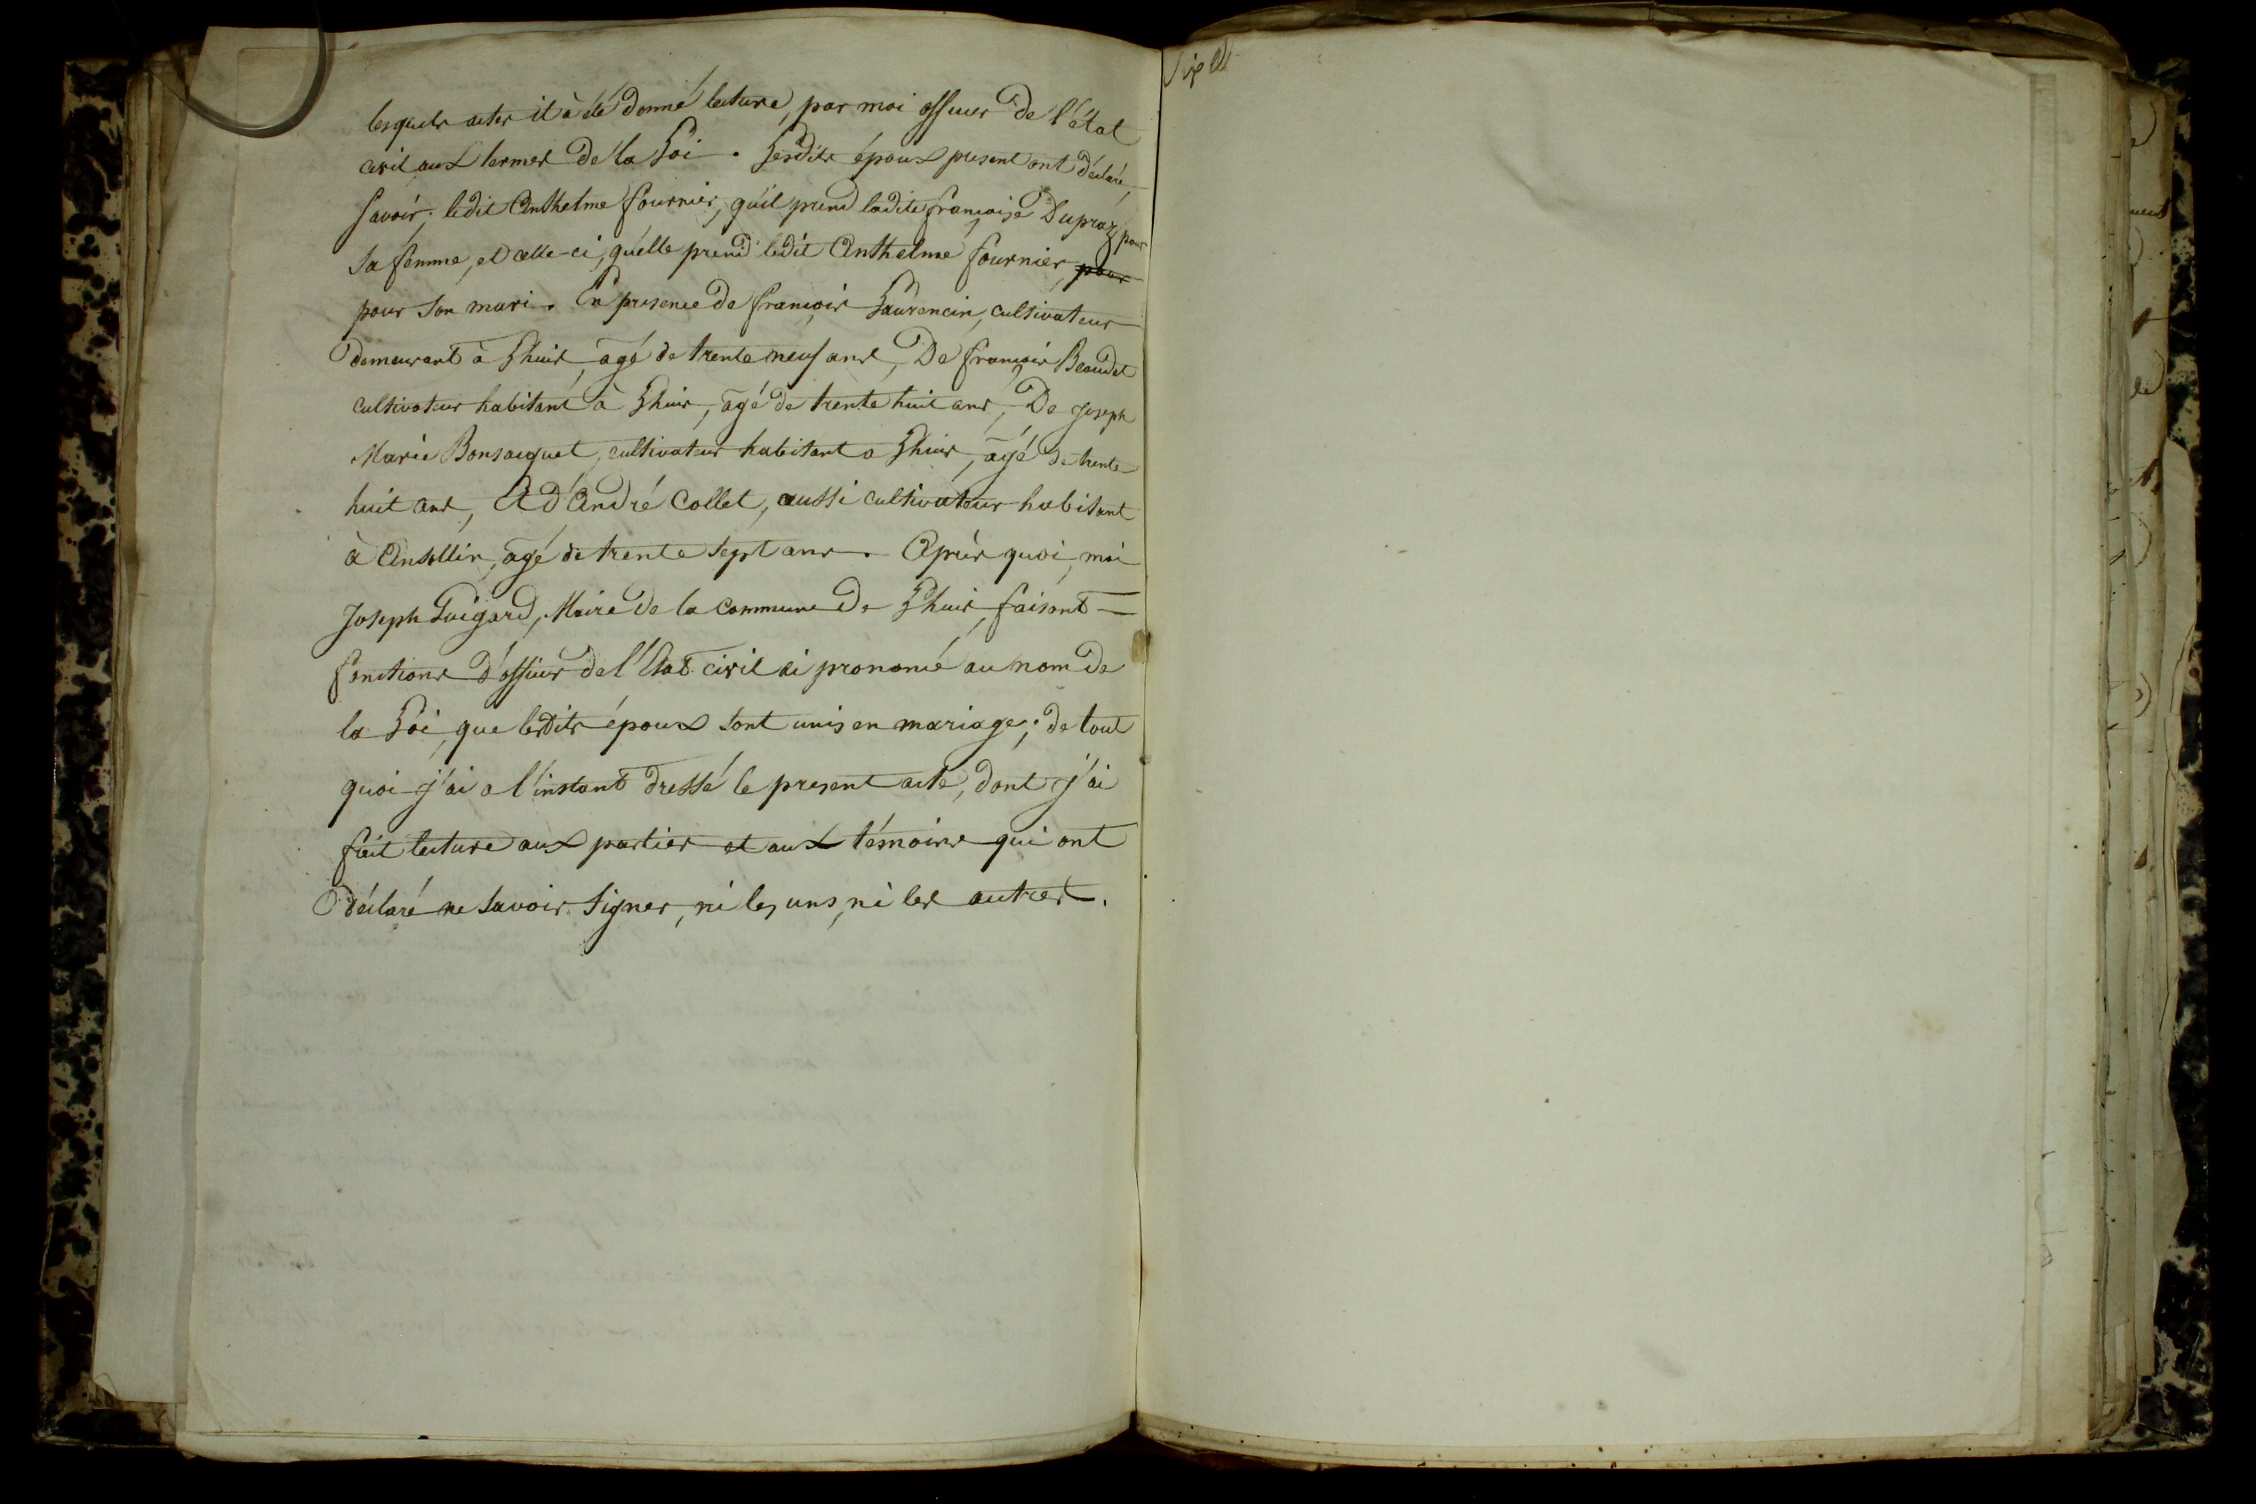 lesquels actes il à été donné lecture, par moi officier de l'état
civil aux termes de la Loi. Lesdits époux présent ont déclaré,
savoir, ledit Anthelme fournier, qu'il prend ladite françoise Dupraz pour
sa femme, et celle-ci, qu'elle prend ledit Anthelme fournier, pour
pour son mari. En presence de françois Laurencin, cultivateur
demeurant à Lhuis, agé de trente neuf ans, De françois Beaudet
cultivateur habitant à Lhuis, agé de trente huit ans, De Joseph
Marie Bonsacquet, cultivateur habitant a Lhuis, agé de trente
huit ans, Et d'André Collet, aussi cultivateur habitant
à Ansolin, agé de trente sept ans. Après quoi, moi
Joseph Guigard, Maire de la Commune de Lhuis, faisant
fonctions d'officier de l'Etat civil ai prononcé au nom de
la Loi, que lesdits époux sont unis en mariage; de tout
quoi j'ai a l'instant dressé le present acte, dont j'ai
fait lecture aux parties et aux témoins qui ont
déclaré ne savoir signer, ni les uns, ni les autres.